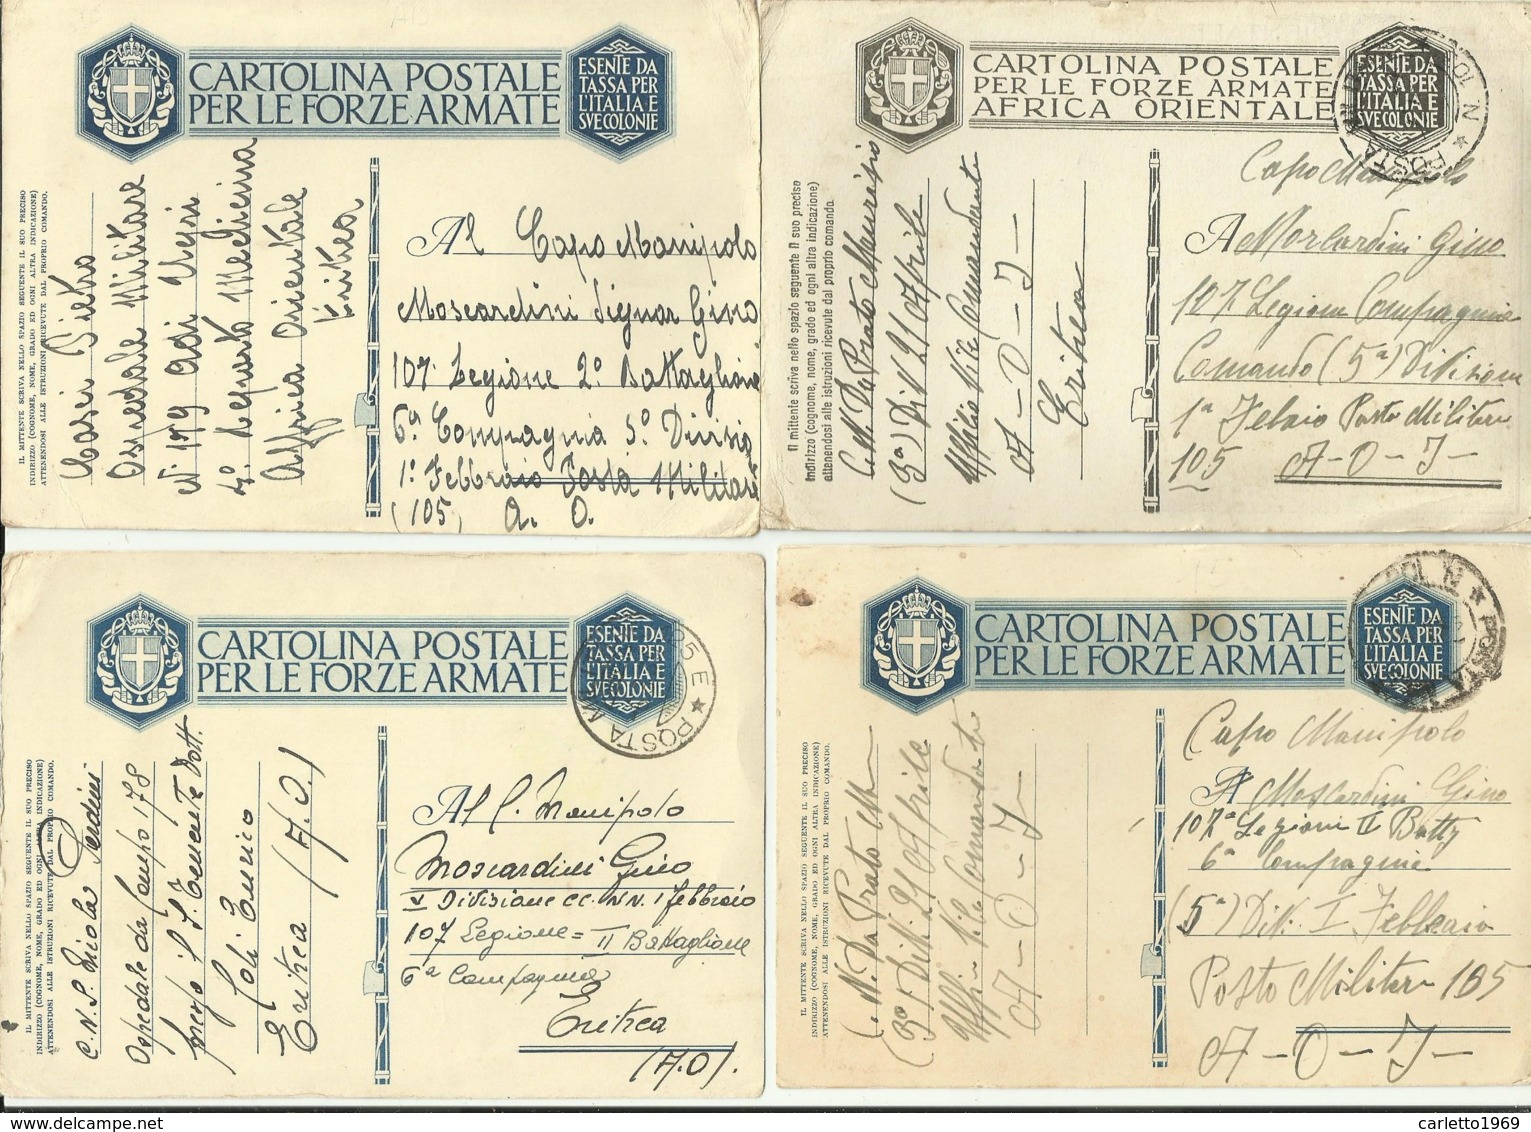 CARTOLINA POSTALE
PER LE FORZE ARMATE
ESENTE DA
TASSA PER
L'ITALIA E
SVE COLONIE
IL MITTENTE SCRIVA NELLO SPAZIO SEGUENTE IL SUO PRECISO
INDIRIZZO (COGNOME, NOME, GRADO ED OGNI ALTRA INDICAZIONE)
ATTENENDOSI ALLE ISTRUZIONI RICEVUTE DAL PROPRIO COMANDO.
Pietro
Ospedale Militare
N° 179 Adi Ugri
4° Reparto Medicina
Affrica Orientale
Eritrea
Al Capo Manipolo
Moscardini Signor Gino
107 Legione 2° Battaglione
6ª Compagnia 5° Divisio
1° Febbraio Posta Militare
(105, A. O.
CARTOLINA POSTALE
PER LE FORZE ARMATE
AFRICA ORIENTALE
ESENTE DA
TASSA PER
L'ITALIA E
SVE COLONIE
POSTA
Il mittente scriva nello spazio seguente il suo preciso
indirizzo (cognome, nome, grado ed ogni altra indicazione)
attenendosi alle istruzioni ricevute dal proprio comando.
C. M. Da Prato Maurizio
(3ª) Div 21 Aprile
A-O-I-
Eritrea
Capo Manipolo
A Moscardini Gino
107 Legione Compagnie
Comando (5ª) Divisione
1ª Febaio Posto Militare
105 A-O-I-
CARTOLINA POSTALE
PER LE FORZE ARMATE
ESENTE DA
TASSA PER
L'ITALIA E
SVE COLONIE
POSTA
IL MITTENTE SCRIVA NELLO SPAZIO SEGUENTE IL SUO PRECISO
INDIRIZZO (COGNOME, NOME, GRADO ED OGNI ALTRA INDICAZIONE)
ATTENENDOSI ALLE ISTRUZIONI RICEVUTE DAL PROPRIO COMANDO.
C. N. S. Nicola
Ospedale da Campo 178
presso il S. Tenente Dott.
Poli Enrico
Eritrea (A.O.)
Al C. Manipolo
Moscardini Gino
V Divisione CC. NN. 1 Febbraio
107 Legione = II Battaglione
6ª Compagnia
Eritrea
(A.O).
CARTOLINA POSTALE
PER LE FORZE ARMATE
ESENTE DA
TASSA PER
L'ITALIA E
SVE COLONIE
POSTA
IL MITTENTE SCRIVA NELLO SPAZIO SEGUENTE IL SUO PRECISO
INDIRIZZO (COGNOME, NOME, GRADO ED OGNI ALTRA INDICAZIONE)
ATTENENDOSI ALLE ISTRUZIONI RICEVUTE DAL PROPRIO COMANDO.
Da Prato
(3ª) Div. 21 Aprile
A-O-I-
Capo Manipolo
A Moscardini Gino
107ª Legione II Battg
6ª Compagnie
(5ª) Div. I Febbraio
Posto Militare 105
A-O-I-
carletto1969